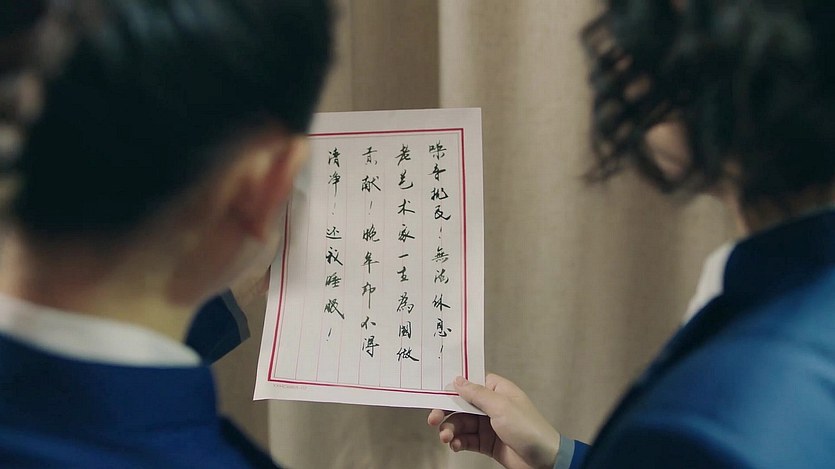 噪音扰民！無法休息！
老艺术家一支為國做
贡献！晚年却不得
清净！还我睡眠！